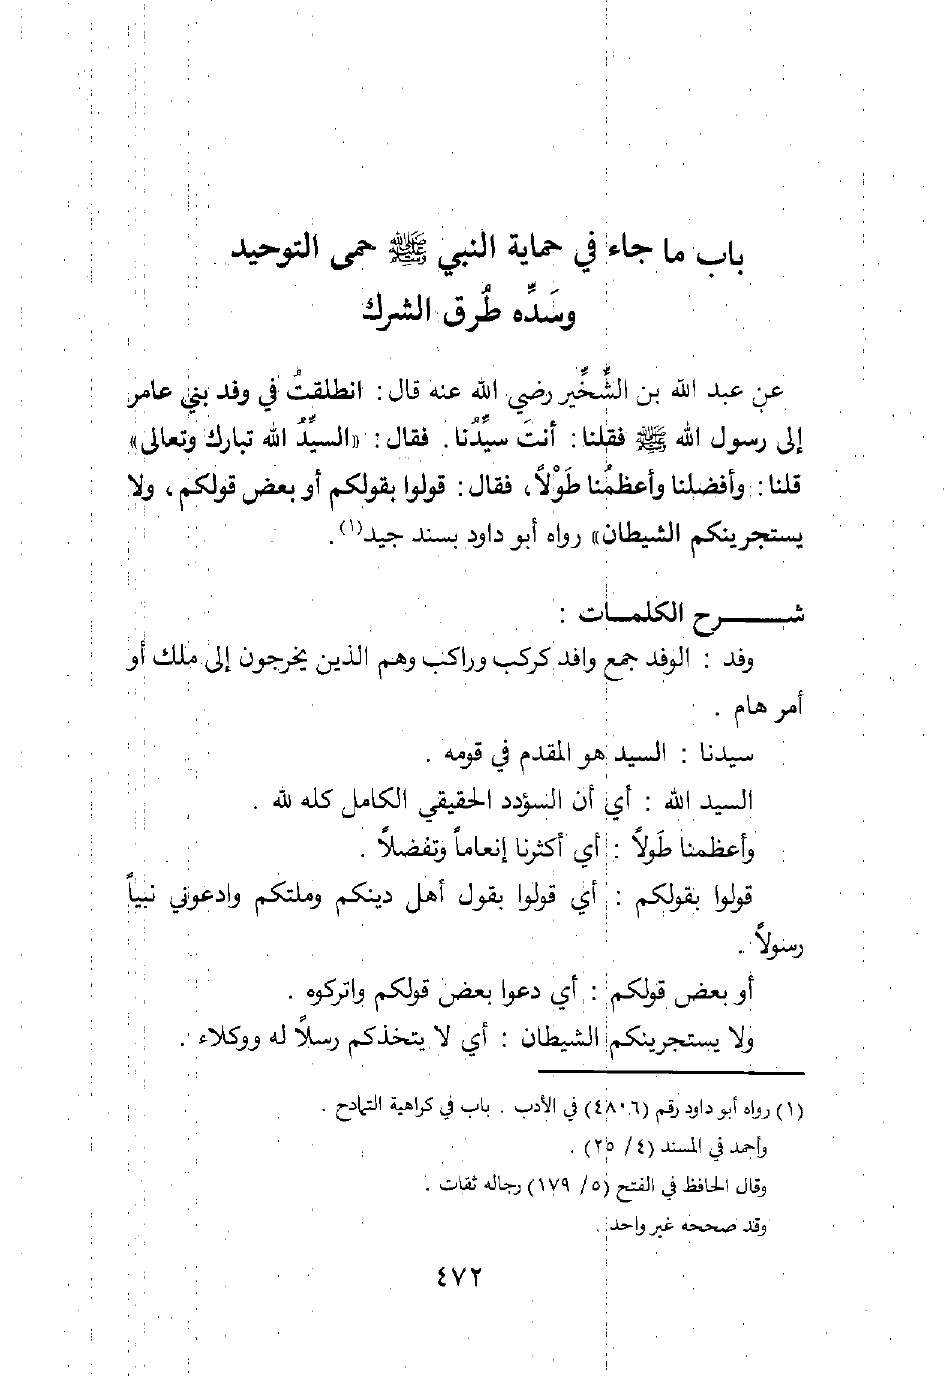 باب ما جاء في حماية النبي ﷺ حمى التوحيد
وسَدِّه طُرق الشرك
عن عبد الله بن الشِّخِّير رضي الله عنه قال: انطلقتُ في وفد بني عامر
إلى رسول الله ﷺ فقلنا: أنتَ سيِّدُنا. فقال: «السيِّدُ الله تبارك وتعالى»
قلنا: وأفضلنا وأعظمُنا طَوْلاً، فقال: قولوا بقولكم أو بعض قولكم، ولا
يستجرينكم الشيطان» رواه أبو داود بسند جيد(١).
شــرح الكلمـات :
وفد : الوفد جمع وافد كركب وراكب وهم الذين يخرجون إلى ملك أو
أمر هام .
سيدنا : السيد هو المقدم في قومه .
السيد الله : أي أن السؤدد الحقيقي الكامل كله لله .
وأعظمنا طَولاً : أي أكثرنا إنعاماً وتفضلاً .
قولوا بقولكم : أي قولوا بقول أهل دينكم وملتكم وادعوني نبياً
رسولاً .
أو بعض قولكم : أي دعوا بعض قولكم واتركوه .
ولا يستجرينكم الشيطان : أي لا يتخذكم رسلاً له ووكلاء .
(١) رواه أبو داود رقم (٤٨٠٦) في الأدب . باب في كراهية التمادح .
وأحمد في المسند (٤/ ٢٥) .
وقال الحافظ في الفتح (٥/ ١٧٩) رجاله ثقات .
وقد صححه غير واحد .
٤٧٢